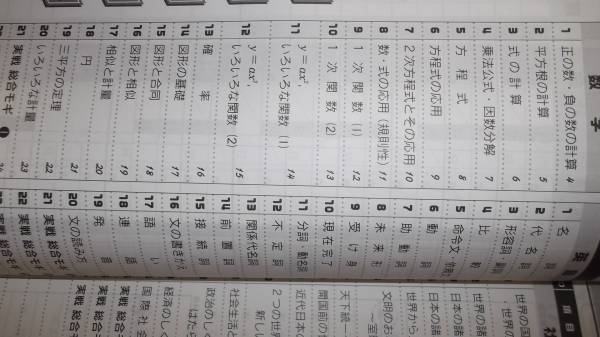 数学
1 正の数・負の数の計算 4
2 平方根の計算 5
3 式の計算 6
4 乗法公式・因数分解 7
5 方程式 8
6 方程式の応用 9
7 2次方程式とその応用 10
8 数・式の応用(規則性) 11
9 1次関数(1) 12
10 1次関数(2) 13
11 y=ax²,
いろいろな関数(1) 14
12 y=ax²,
いろいろな関数(2) 15
13 確率 16
14 図形の基礎 17
15 図形と合同 18
16 図形と相似 19
17 相似と計量 20
18 円 20
19 三平方の定理 21
20 いろいろな計量 22
21 実戦 総合モギ 1 23
英
1 名詞
2 代名詞
3 形容詞
4 比較
5 命令文
6 動
7 助動詞
8 未来形
9 受け身
10 現在完了
11 分詞・動名詞
12 不定詞
13 関係代名詞
14 前置詞
15 接続詞
16 文の書きかえ
17 語い
18 連語
19 発音
20 文の読み方
21 実戦 総合モギ
項目
世界の国
世界の
世界の諸
日本の
日本の諸
世界から
文明のお
～至
天下統一
開国前の
近代日本の
2つの世界
新しい
社会生活と
政治のしく
はたら
経済のしく
国際社会
実戦 総合モギ